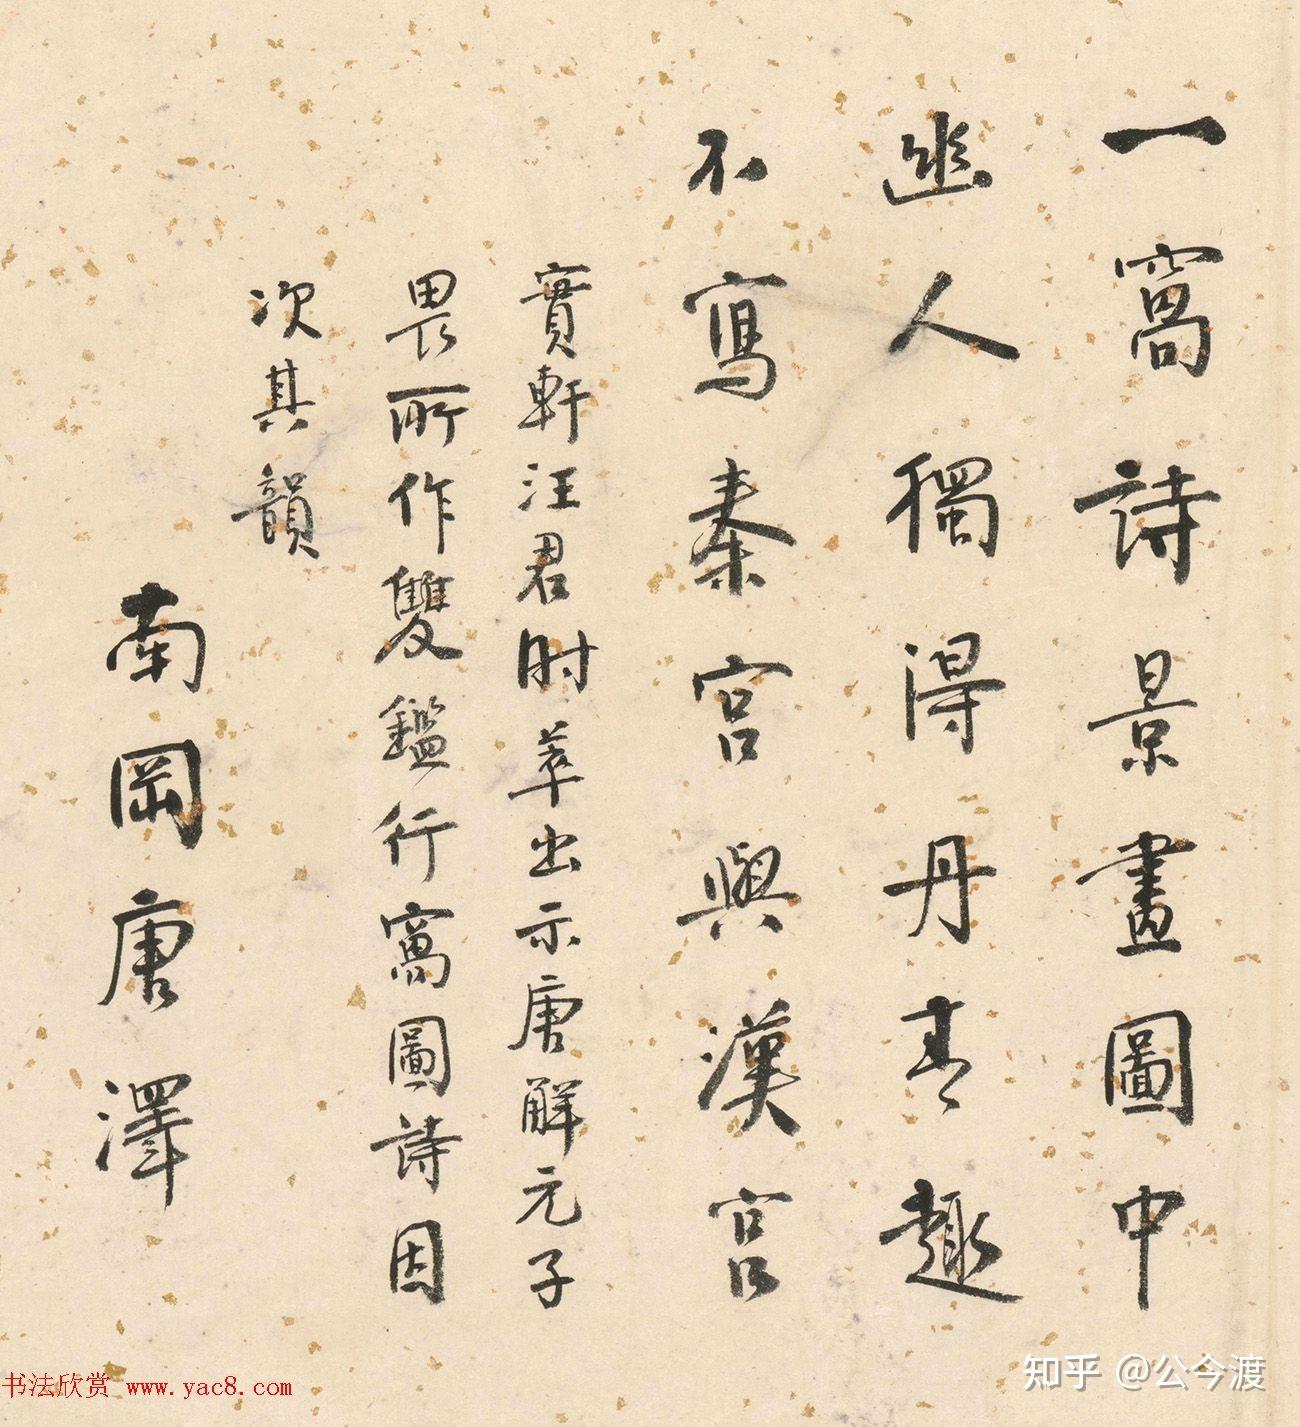 一窩詩景畫圖中
幽人獨得丹青趣
不寫秦宮與漢宮
實軒汪君時萃出示唐解元子
畏所作雙鑑行窩圖詩因
次其韻
南岡唐澤
书法欣赏 www.yac8.com
知乎 @公今渡